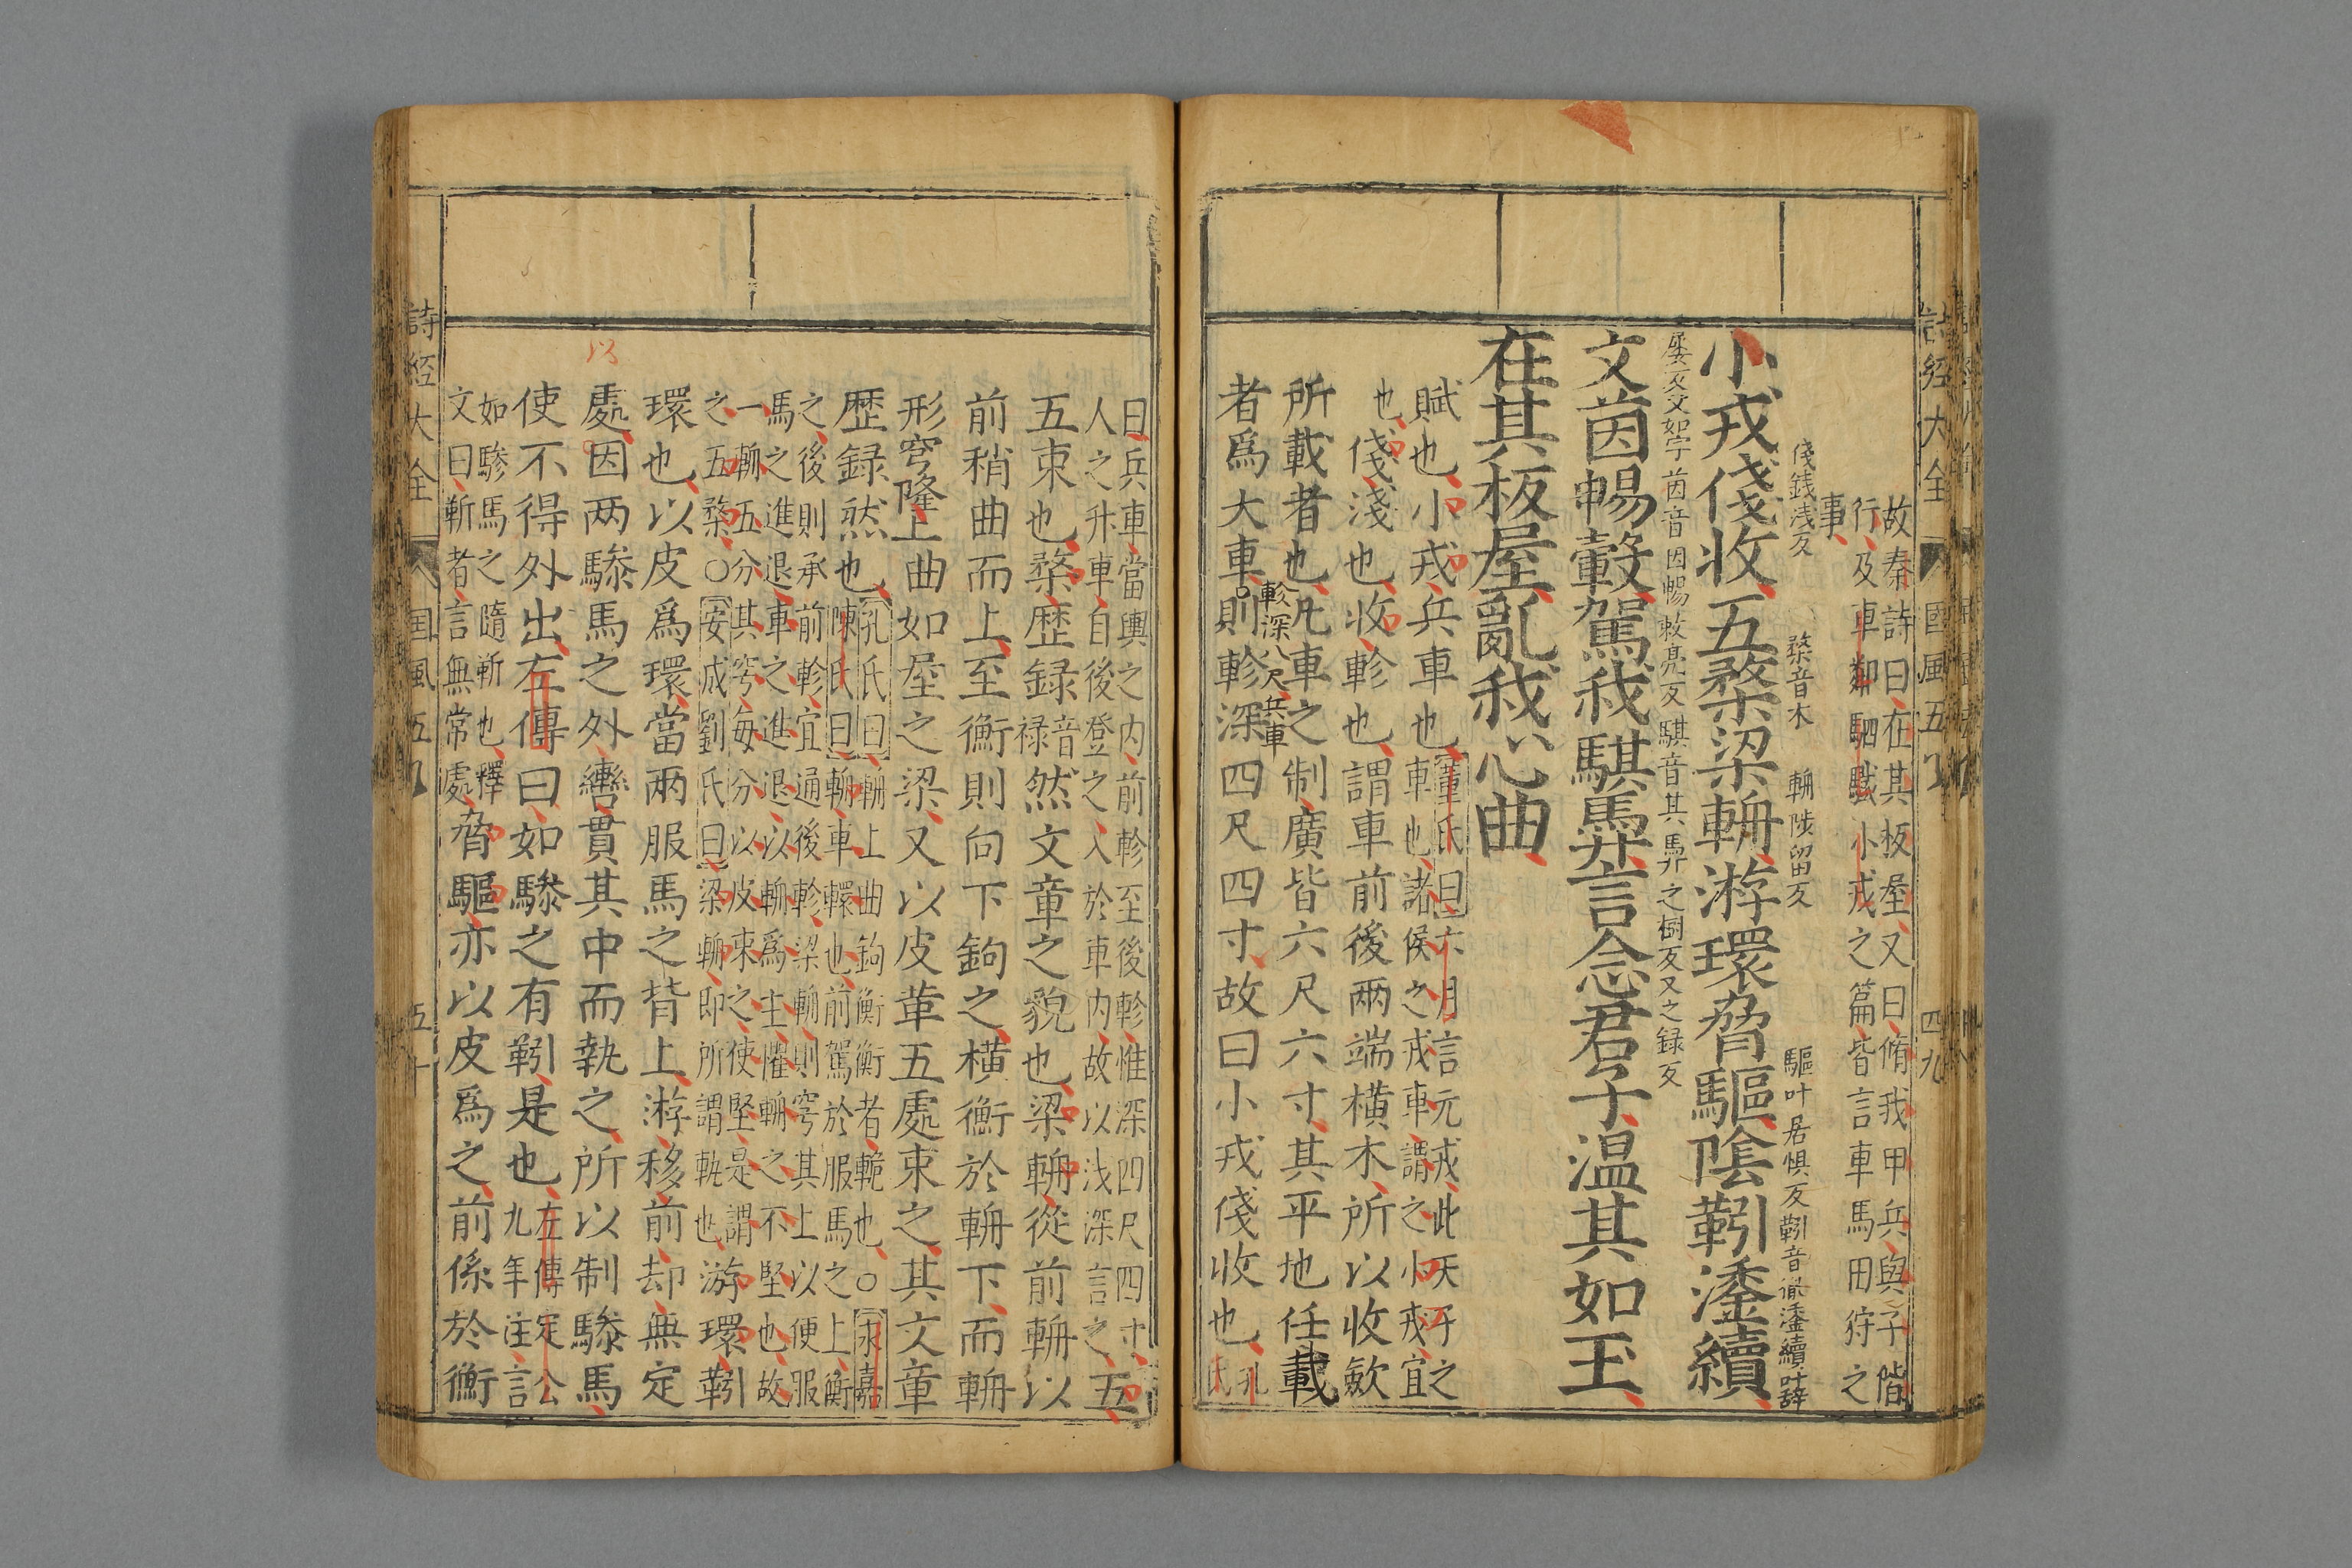 故秦詩曰在其板屋又曰脩我甲兵與子階
行及車鄰駟驖小戎之篇皆言車馬田狩之
事
俴錢淺反 楘音木 輈陟留反 驅叶居懼反靷音胤鋈續叶辭
小戎俴收五楘梁輈游環脅驅陰靷鋈續
屢反文如字茵音因暢敕亮反騏音其馵之樹反又之録反
文茵暢轂駕我騏馵言念君子温其如玉
在其板屋亂我心曲
賦也小戎兵車也
董氏曰六月言元戎此天子之
車也諸侯之戎車謂之小戎宜
也
俴淺也收軫也謂車前後兩端横木所以收歛
所載者也凡車之制廣皆六尺六寸其平地任載
者爲大車則軫深八尺兵車
則軫深四尺四寸故曰小戎俴收也
孔
氏
詩經大全
國風五
四九
曰兵車當輿之内前軫至後軫惟深四尺四寸
人之升車自後登之入於車内故以淺深言之
五
五束也楘歷録
音
禄
然文章之貌也梁輈從前軫以
前稍曲而上至衡則向下鉤之横衡於輈下而輈
形穹隆上曲如屋之梁又以皮革五處束之其文章
歴録然也
孔氏曰輈上曲鉤衡衡者軛也○永嘉
陳氏曰輈車轅也前駕於服馬之上衡
之後則承前軫宜通後軫梁輈則穹其上以便服
馬之進退車之進退以輈爲主懼輈之不堅也故
一輈五分其穹每分以皮束之使堅是謂
之五楘○安成劉氏曰梁輈即所謂軏也
游環靷
環也以皮爲環當兩服馬之背上游移前却無定
處因兩驂馬之外轡貫其中而執之所以制驂馬
以
使不得外出左傳曰如驂之有靷是也
左傳定公
九年注言
如驂馬之隨靳也釋
文曰靳者言無常處
脅驅亦以皮爲之前係於衡
詩經大全
国風五
五十